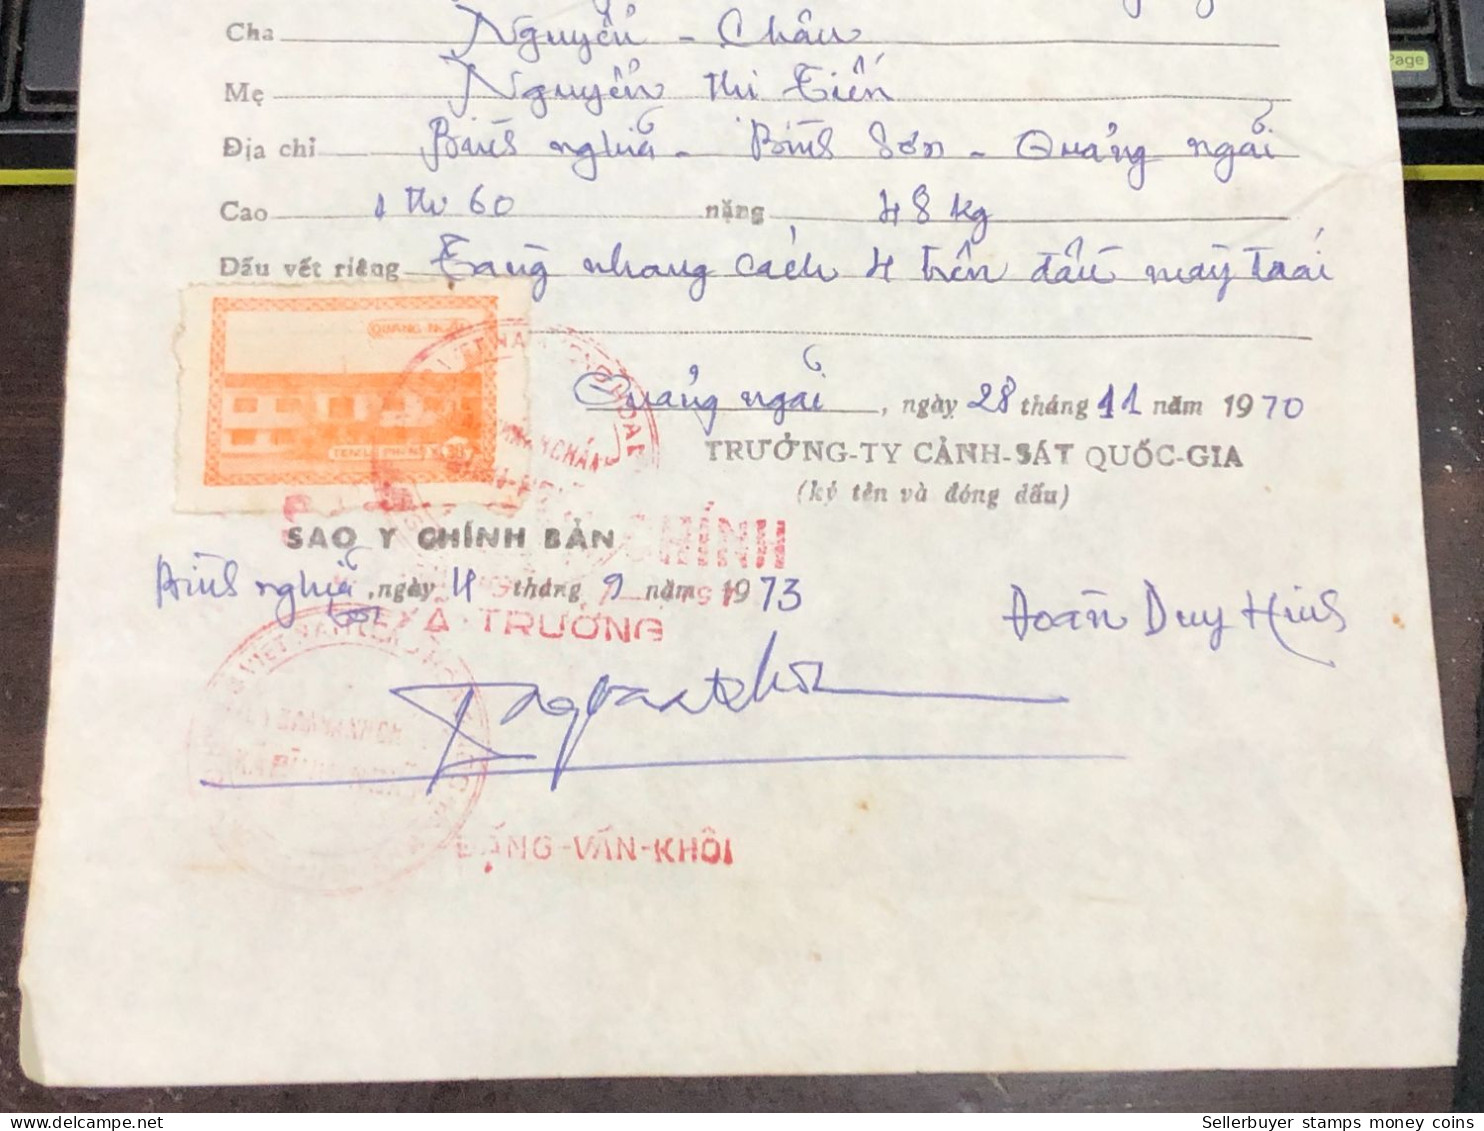 Cha Nguyễn - Châu
Mẹ Nguyễn thị Tiến
Địa chỉ Bình nghĩa - Bình Sơn - Quảng ngãi
Cao 1 th 60 nặng 48 kg
Dấu vết riêng Tàng nhang cách 4 trên đầu mày trái
QUANG NGAI
Quảng ngãi, ngày 28 tháng 11 năm 1970
TRƯỞNG-TY CẢNH-SÁT QUỐC-GIA
(ký tên và đóng dấu)
SAO Y CHÍNH BẢN
Bình nghĩa, ngày 4 tháng 9 năm 1973
XÃ-TRƯỞNG
Đoàn Duy Hinh
ĐẶNG-VĂN-KHÔI
Page
Sellerbuyer stamps money coins